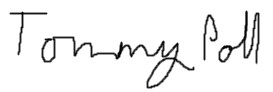 Tommy Poll